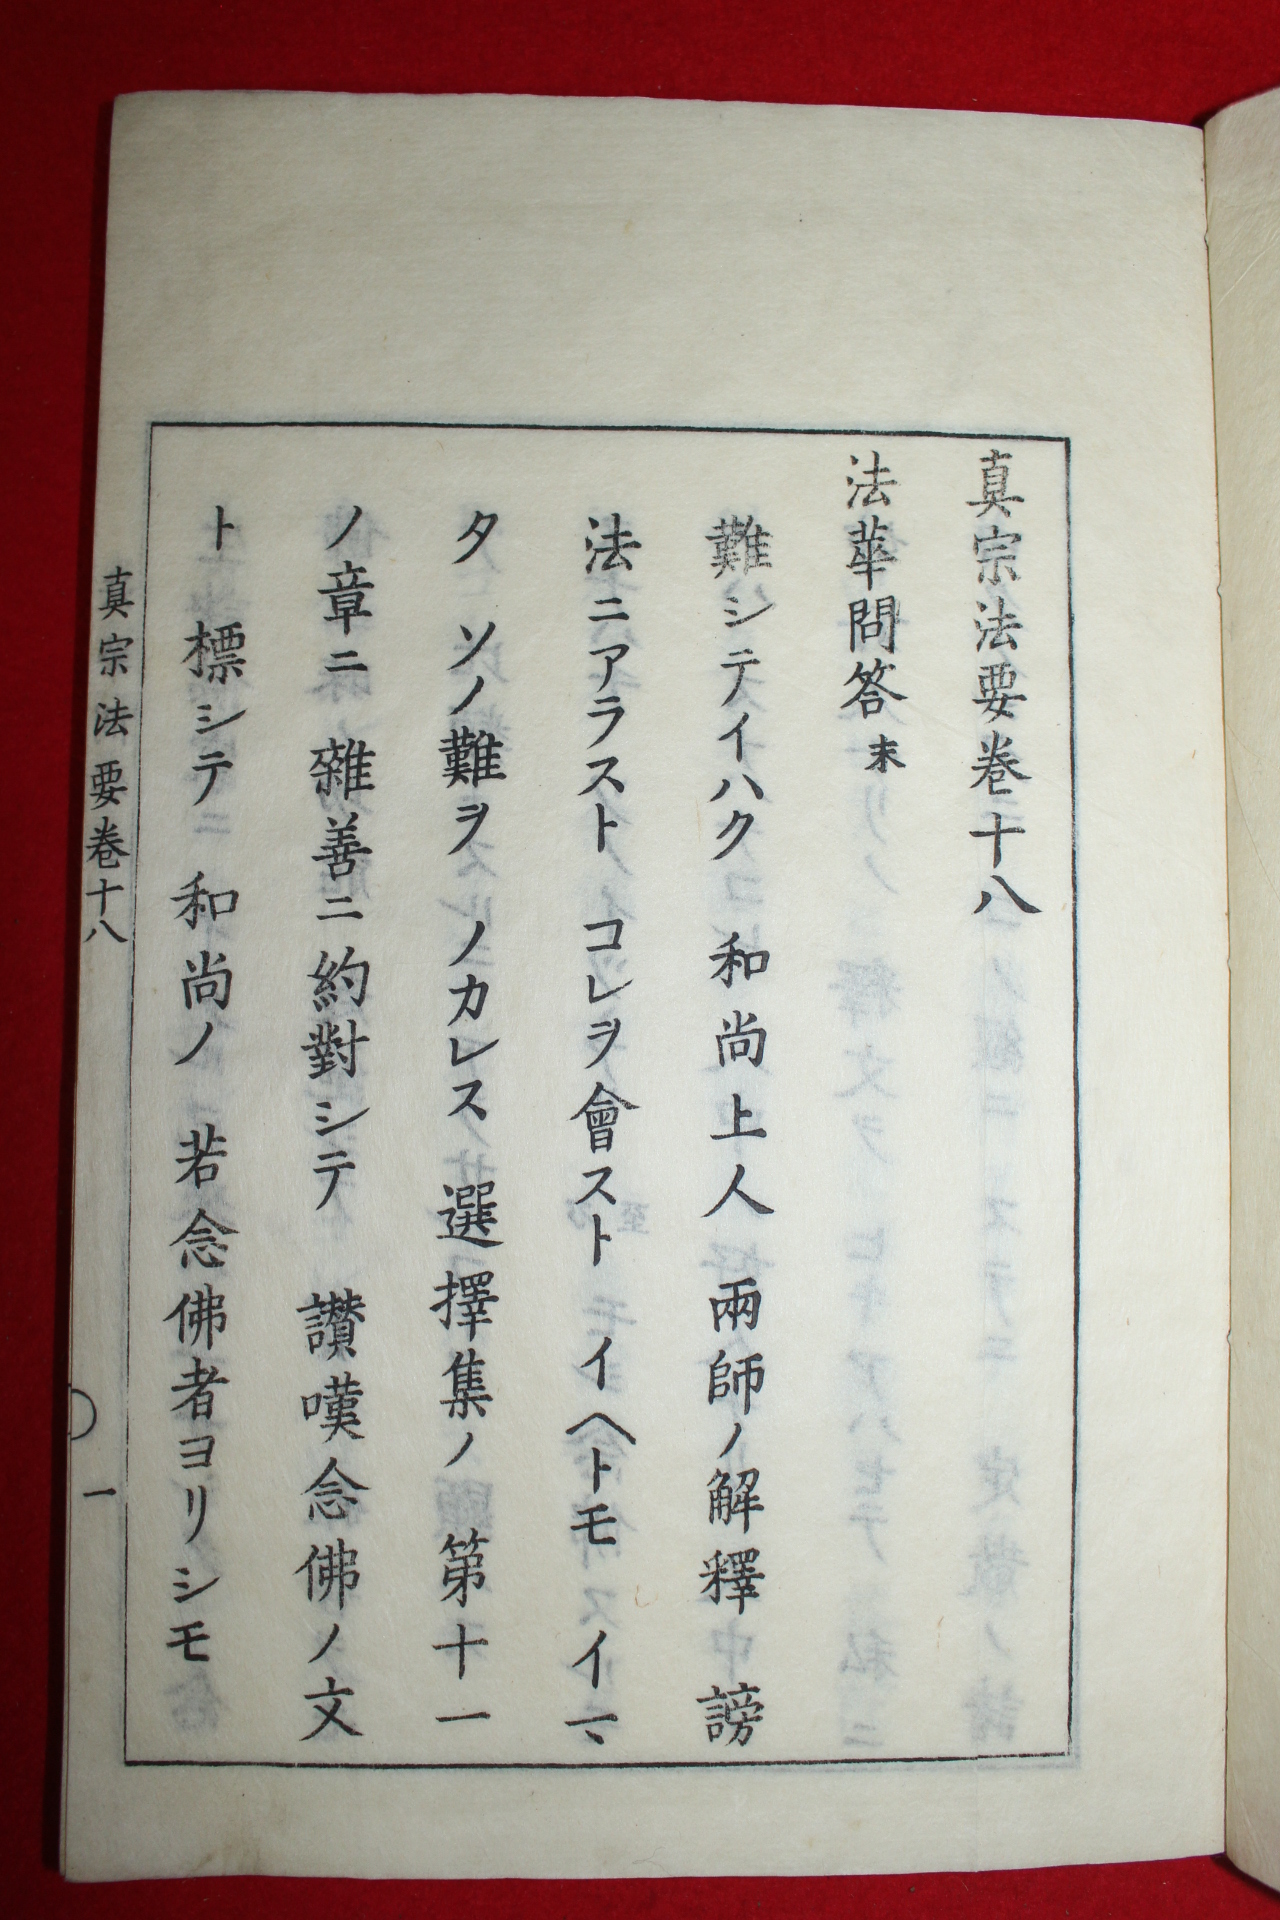 真宗法要卷十八
法華問答末
難シテイハク和尚上人兩師ノ解釋謗
法ニアラストコレヲ會ストイヘトモイマ
タソノ難ヲノカレス選擇集ノ第十一
ノ章ニ雜善ニ約對シテ讃嘆念佛ノ文
ト標シテニ和尚ノ若念佛者ヨリシモ
真宗法要卷十八
一